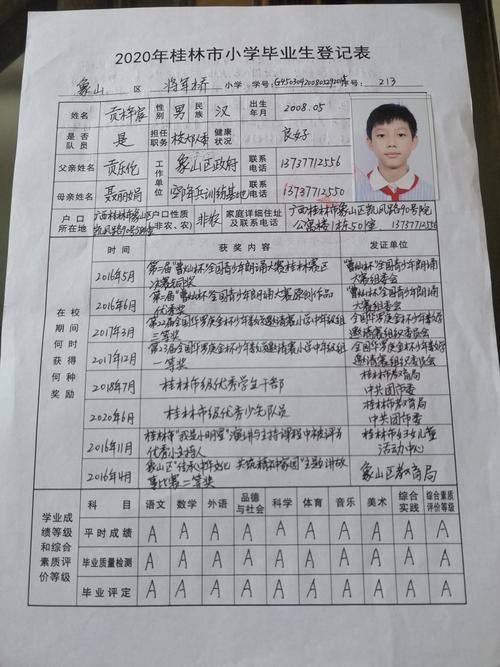 2020年桂林市小学毕业生登记表
象山 区 将军桥 小学 学号: 号: 213
姓名 性别 男 民族 汉 出生年月 2008.05
是否队员 是 担任职务 校大队委 健康状况 良好
父亲姓名 贡乐伦 工作单位 象山区政府 联系电话 13737712556
母亲姓名 聂丽娟 训练基地 联系电话 13737712550
户口所在地 广西桂林市象山区凯风路90号 户口性质(非农、农) 非农 家庭详细住址及联系电话 广西桂林市象山区凯风路90号院 1栋50室 13737712556
在校期间何时获得何种奖励
时间 获奖内容 发证单位
2016年5月 第二届"曹灿杯"全国青少年朗诵大赛桂林赛区 "曹灿杯"全国青少年朗诵大赛组委会
2016年6月 第二届"曹灿杯"全国青少年朗诵大赛原创作品优秀奖 "曹灿杯"全国青少年朗诵大赛组委会
2017年3月 第22届全国华罗庚金杯少年数学邀请赛小学中年级组三等奖 全国华罗庚金杯少年数学邀请赛组织委员会
2017年12月 第23届全国华罗庚金杯少年数学邀请赛小学中年级组一等奖 全国华罗庚金杯少年数学邀请赛组织委员会
2018年7月 桂林市级优秀学生干部 桂林市教育局 中共团市委
2020年6月 桂林市级优秀少先队员 桂林市教育局 中共团市委
2016年11月 桂林市"我是小明星"演讲与主持课程中被评为优秀小主持人 桂林市妇女儿童活动中心
2016年4月 象山区"传承中华文化 共筑精神家园"主题讲故事比赛二等奖 象山区教育局
学业成绩等级和综合素质评价等级
科目 语文 数学 外语 品德与社会 科学 体育 音乐 美术 综合实践 综合素质评价等级
平时成绩 A A A A A A A A A A
毕业质量检测 A A A A A A A A A A
毕业评定 A A A A A A A A A A